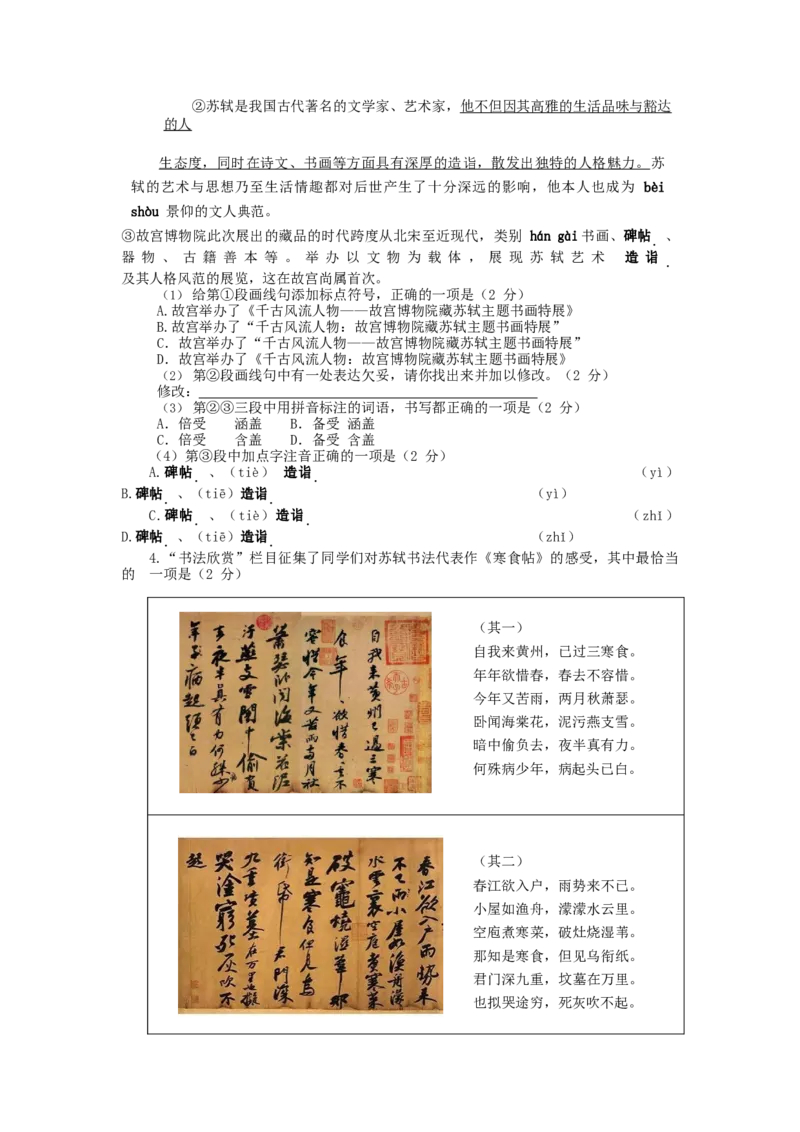 ②苏轼是我国古代著名的文学家、艺术家，他不但因其高雅的生活品味与豁达
的人
生态度，同时在诗文、书画等方面具有深厚的造诣，散发出独特的人格魅力。苏
轼的艺术与思想乃至生活情趣都对后世产生了十分深远的影响，他本人也成为 bèi
shòu 景仰的文人典范。
③故宫博物院此次展出的藏品的时代跨度从北宋至近现代，类别 hán gài 书画、碑帖 、
器物、古籍善本等。举办以文物为载体，展现苏轼艺术 造诣
及其人格风范的展览，这在故宫尚属首次。
（1） 给第①段画线句添加标点符号，正确的一项是（2 分）
A.故宫举办了《千古风流人物——故宫博物院藏苏轼主题书画特展》
B.故宫举办了“千古风流人物：故宫博物院藏苏轼主题书画特展”
C. 故宫举办了“千古风流人物——故宫博物院藏苏轼主题书画特展”
D. 故宫举办了《千古风流人物：故宫博物院藏苏轼主题书画特展》
（2） 第②段画线句中有一处表达欠妥，请你找出来并加以修改。（2 分）
修改：
（3） 第②③三段中用拼音标注的词语，书写都正确的一项是（2 分）
A. 倍受 涵盖 B. 备受 涵盖
C. 倍受 含盖 D. 备受 含盖
（4）第③段中加点字注音正确的一项是（2 分）
A.碑帖 、（tiè） 造诣 （yì）
B.碑帖 、（tiē）造诣 （yì）
C.碑帖 、（tiè）造诣 （zhī）
D.碑帖 、（tiē）造诣 （zhī）
4.“书法欣赏”栏目征集了同学们对苏轼书法代表作《寒食帖》的感受，其中最恰当
的 一项是（2 分）
自我来黄州已过三寒
食年年欲惜春春去不
容惜今年又苦雨两月秋
萧瑟卧闻海棠花泥
污燕支雪闇中偷负
去夜半真有力何殊少
年子病起须已白
（其一）
自我来黄州，已过三寒食。
年年欲惜春，春去不容惜。
今年又苦雨，两月秋萧瑟。
卧闻海棠花，泥污燕支雪。
暗中偷负去，夜半真有力。
何殊病少年，病起头已白。
春江欲入户雨势来
不已雨小屋如渔舟濛濛
水云里空庖煮寒菜
破灶烧湿苇那
知是寒食但见乌
衔帋君门深
九重坟墓在万里也拟
哭涂穷死灰吹不
起
（其二）
春江欲入户，雨势来不已。
小屋如渔舟，濛濛水云里。
空庖煮寒菜，破灶烧湿苇。
那知是寒食，但见乌衔纸。
君门深九重，坟墓在万里。
也拟哭途穷，死灰吹不起。